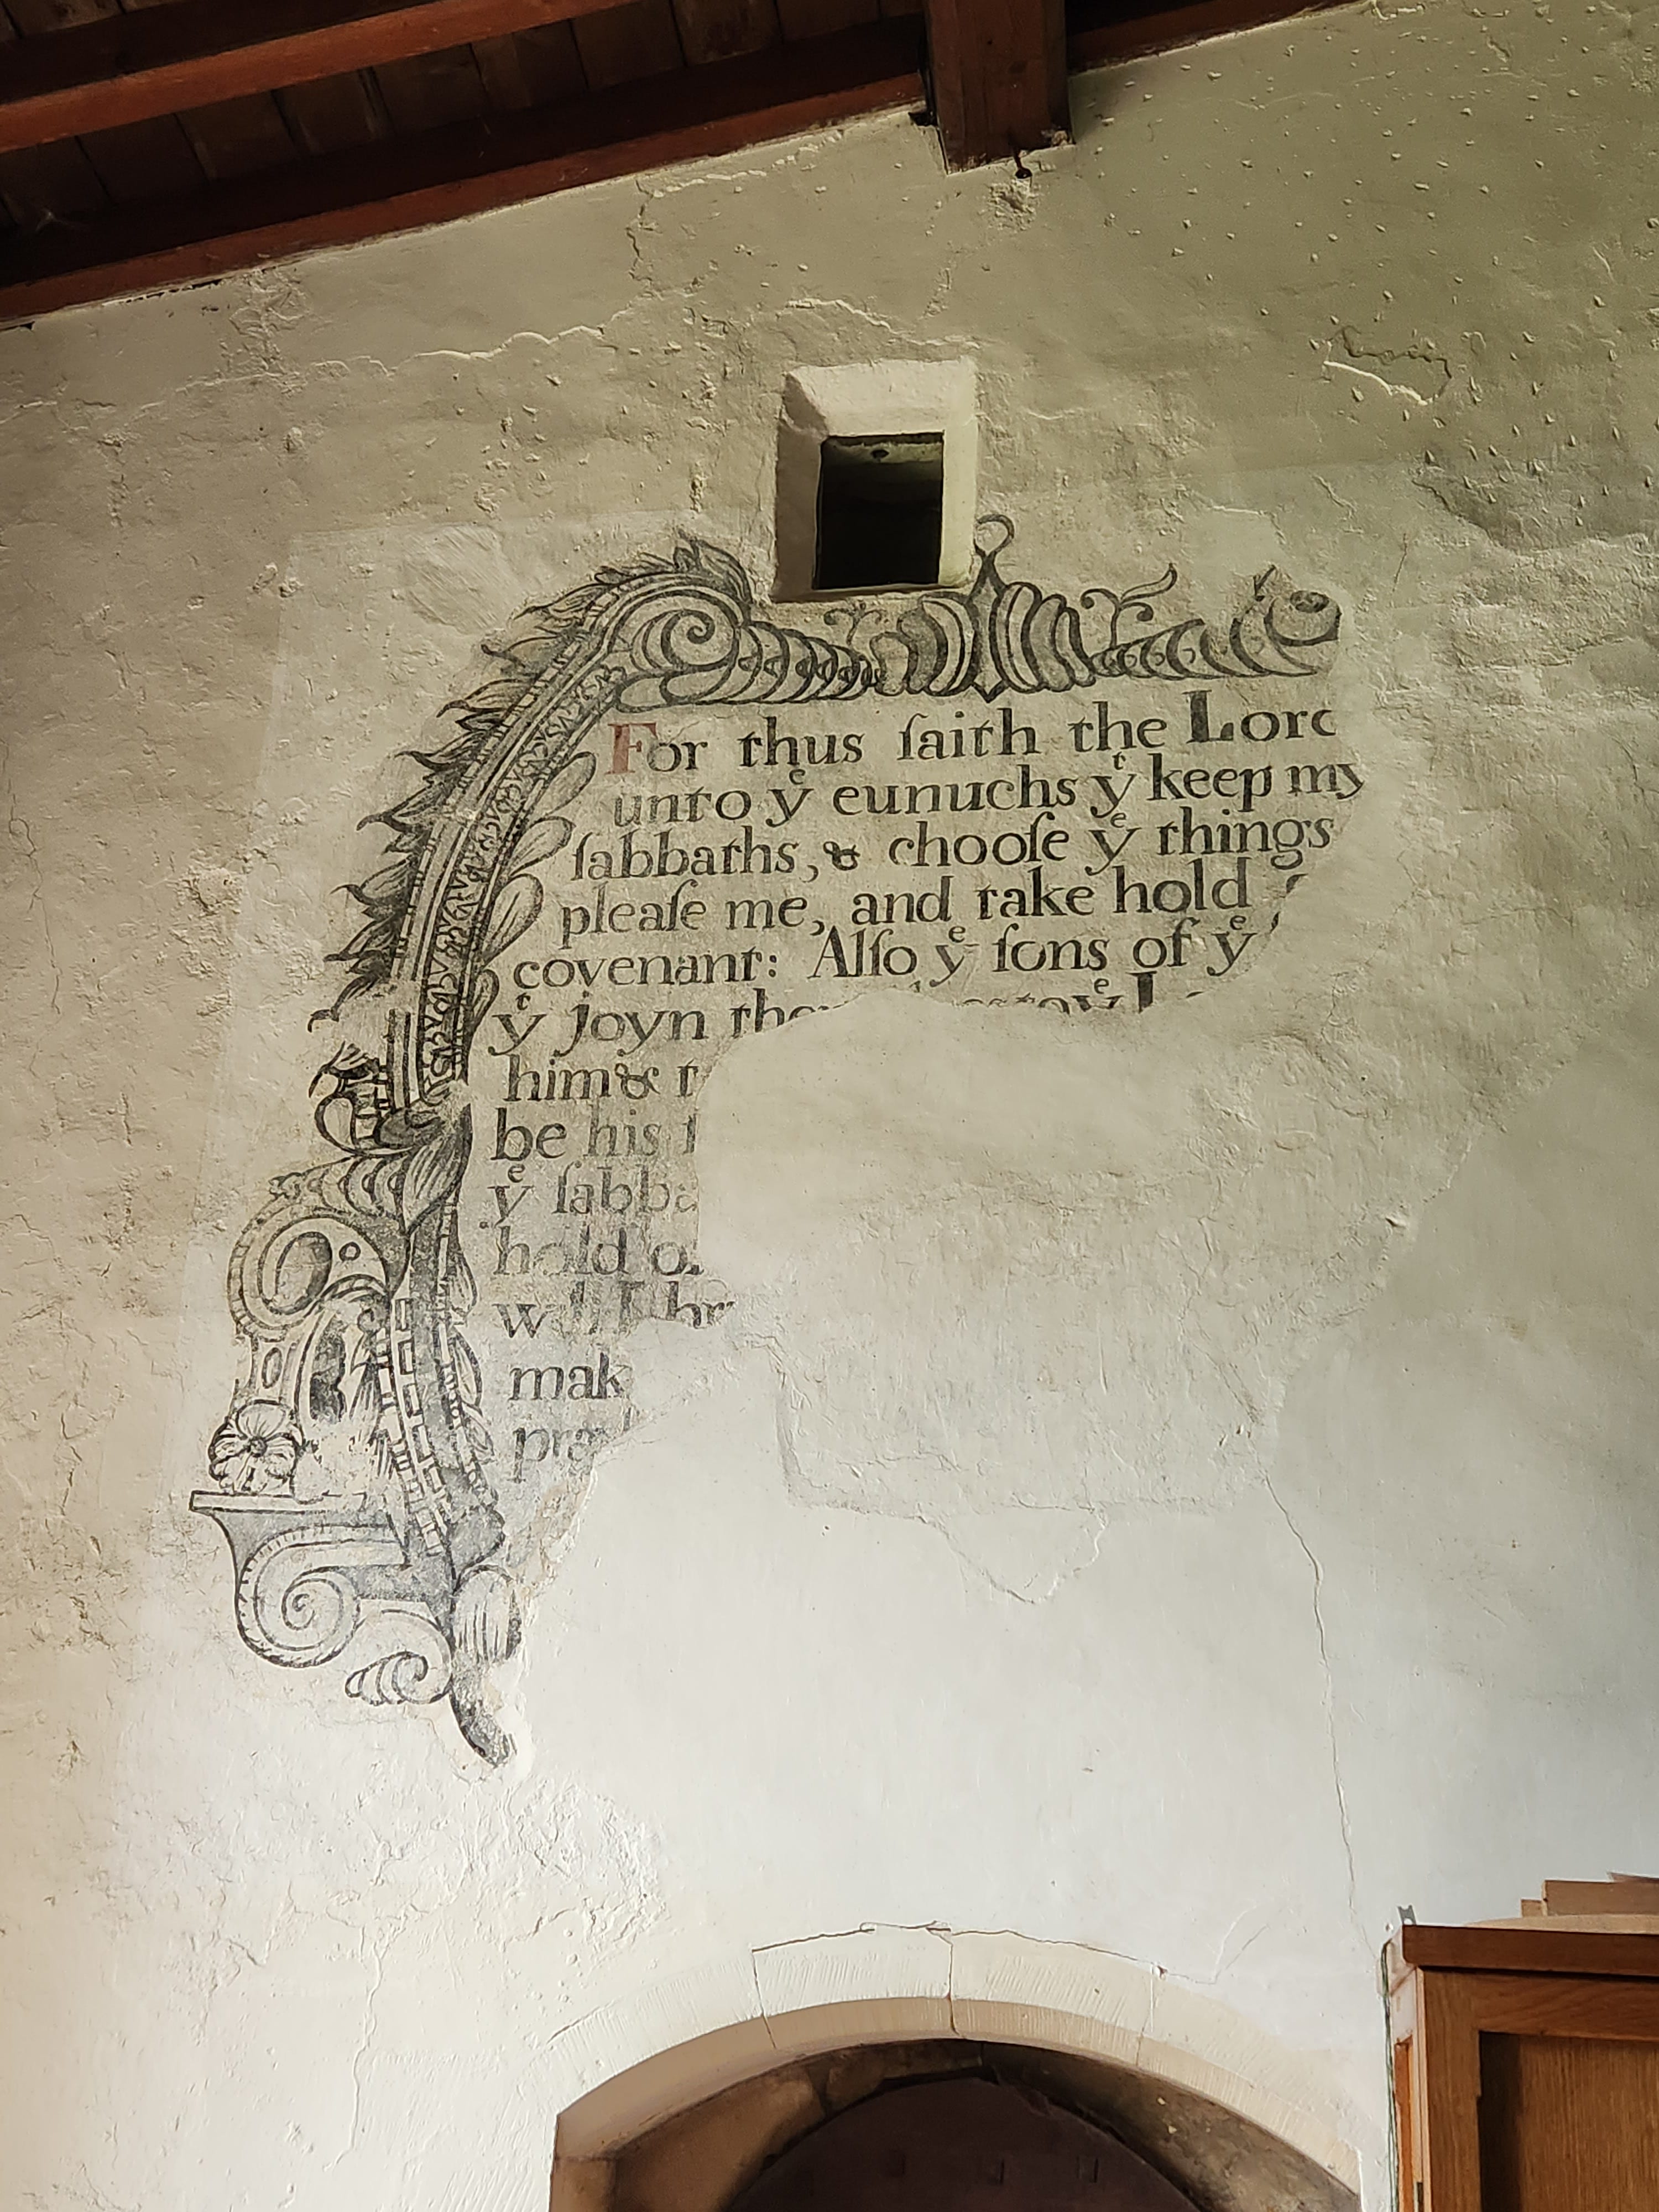 For thus ſaith the Lord
unto yͤ eunuchs yͭ keep my
ſabbaths, & chooſe yͤ things
pleaſe me, and take hold
covenant: Alſo yͤ ſons of yͤ
yͭ joyn
him &
be his
yͤ ſabba
hold o
will I br
mak
pra